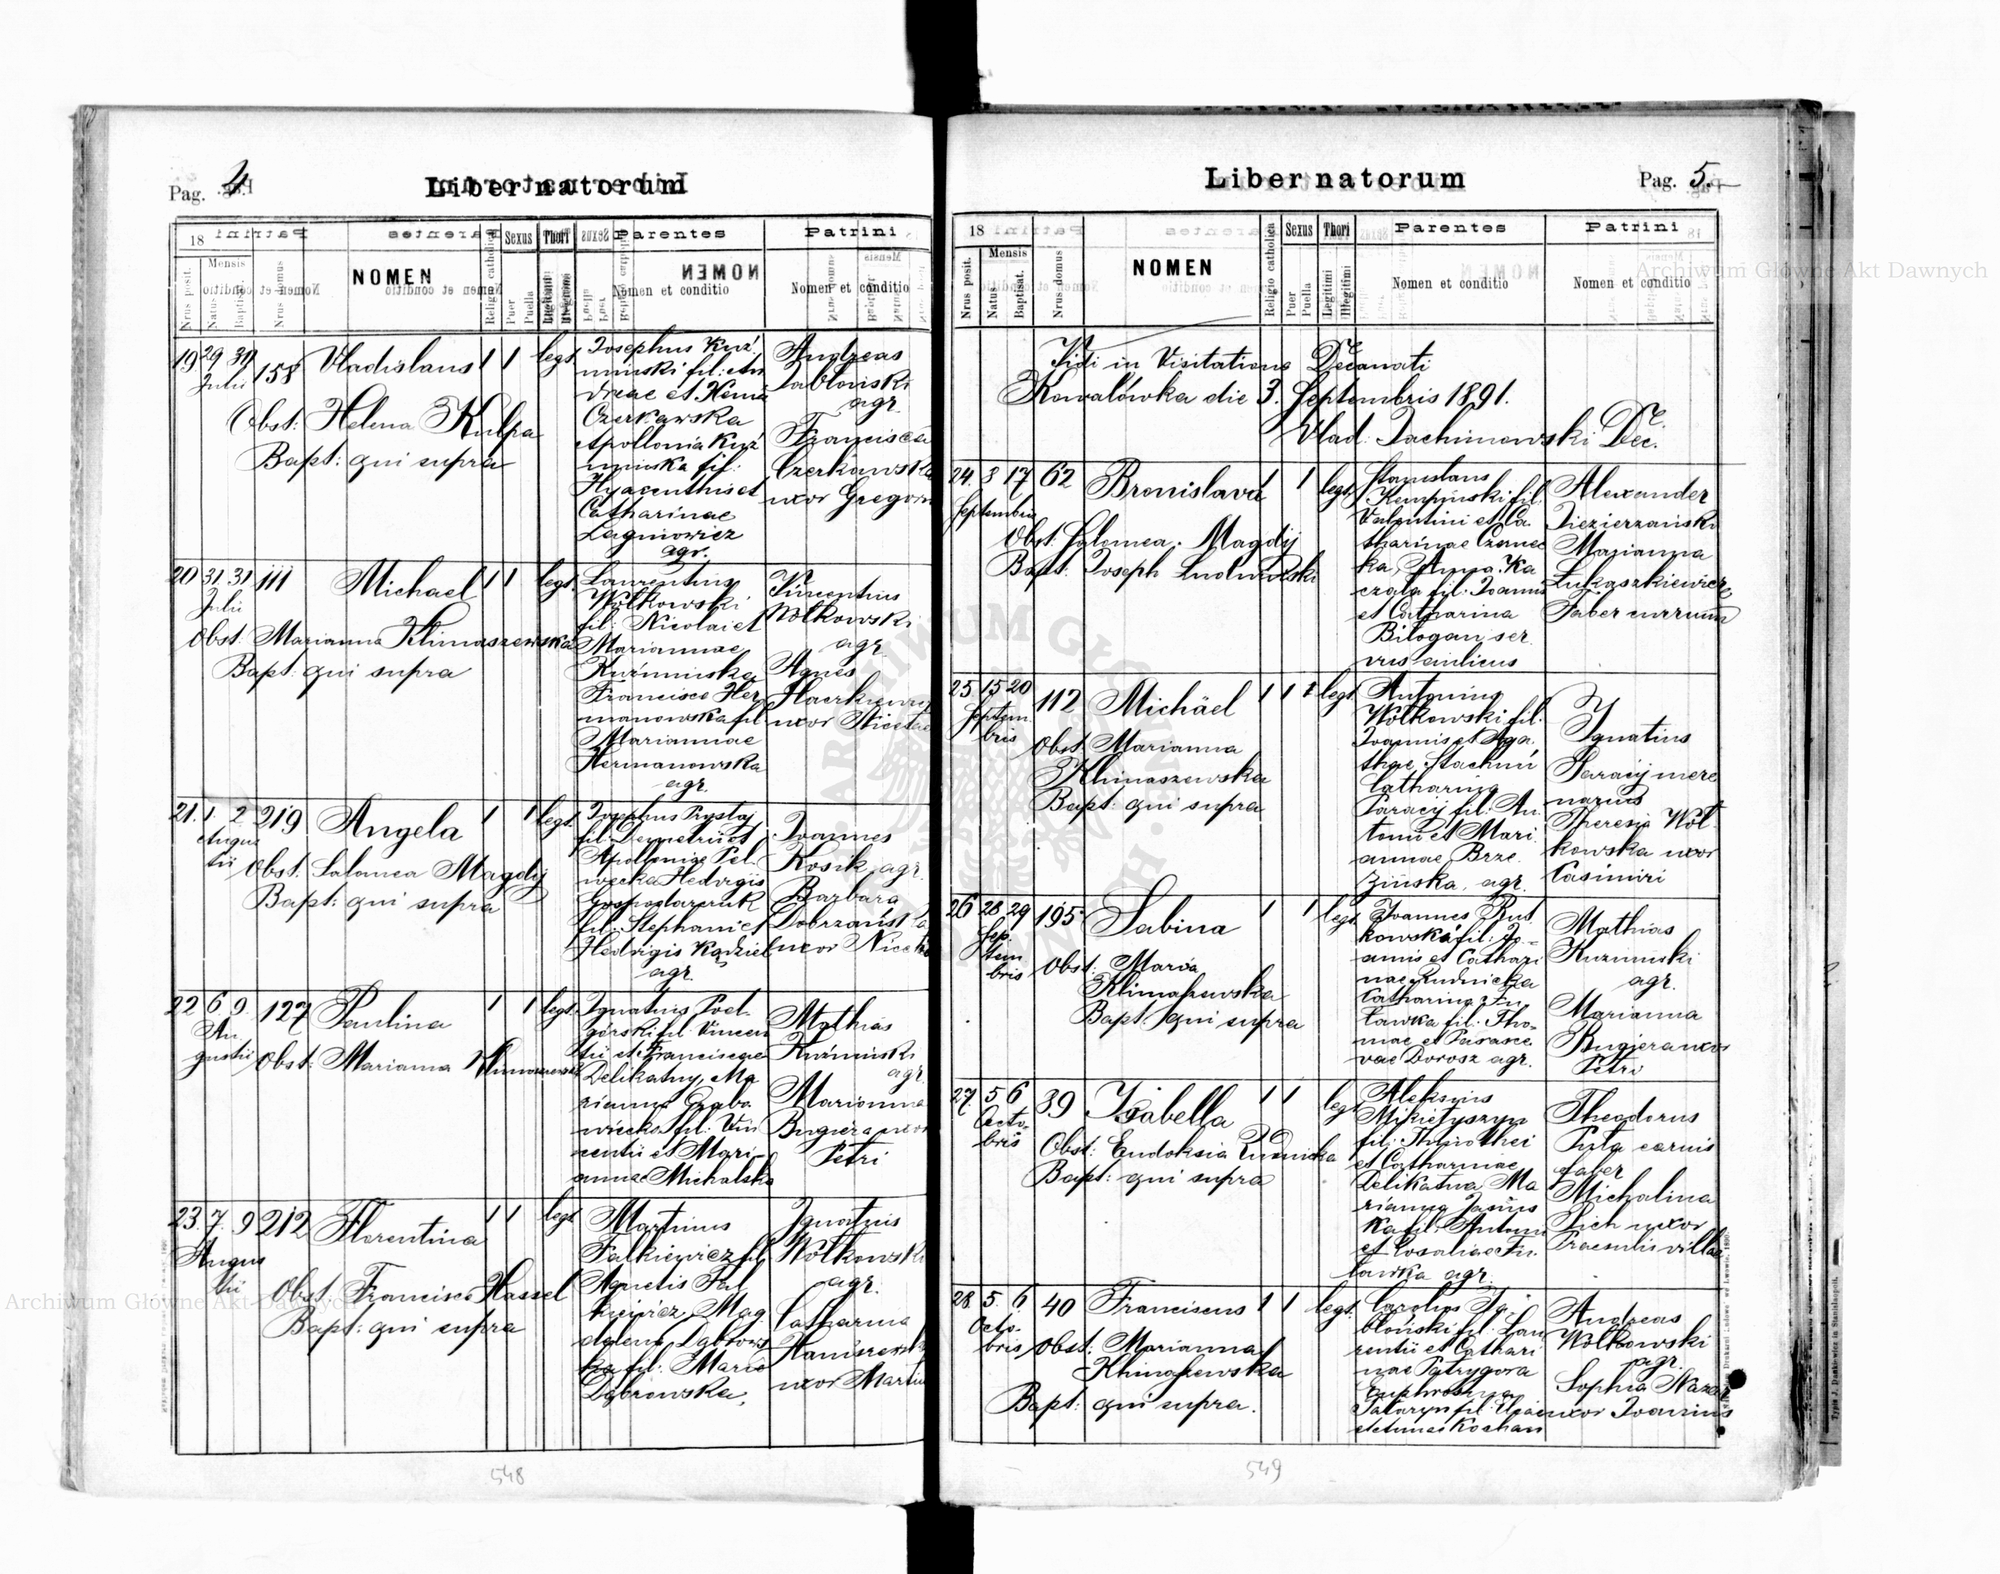 Pag. 4
Liber natorum
18
Mensis
Nrus posit.
Natus
Baptisat.
Nrus domus
NOMEN
Religio catholica
Sexus
Puer
Puella
Thori
Parentes
Nomen et conditio
Patrini
Nomen et conditio
19
29 31
Julii
158
Vladislaus
1 1
legt.
Obst: Helena Kulpa
Bapt: qui supra
Josephus Kuź
miński fil: An
dreae et Xenia
Czerkawska
Apollonia Kuź
mińska fil:
Hyacenthis et
Catharinae
Łagniowicz
agr.
Andreas
Jabłoński
agr.
Francisca
Czerkawska
uxor Gregorii
20
31 31
Julii
111
Michael
1 1
legt.
Obst: Marianna Klimaszewska
Bapt: qui supra
Laurentius
Wołkowski
fil: Nicolai et
Mariannae
Kuźmińska
Francisca Her
manowska fil
Mariannae
Hermanowska
agr.
Vincentius
Wołkowski
agr.
Agnes
uxor Nicetae
21.
1. 2.
Augus
tii
219
Angela
1 1
legt.
Obst: Salomea Magdij
Bapt: qui supra
Josephus Prystaj
fil: Demetrii et
Apolloniae Pel
wecka Hedvigis
Gospodarczuk
fil: Stephani et
Hedvigis Kądziel
agr.
Joannes
Kosik agr.
Barbara
uxor Nicetae
22
6 9
Au
gustii
127
Paulina
1 1
legt.
Obst: Marianna Klimaszewska
Ignatius Pod
górski fil: Vincen
tii et Franciscae
Delikatny, Ma
rianna Grabo
wiecka fil: Vin
centii et Mari
annae Michalska
Mathias
Kuźmiński
agr.
Marianna
Bugiera uxor
Petri
23.
7. 9
Augus
tii
212
Florentina
1 1
legt.
Obst: Francisca Hassel
Bapt: qui supra
Martinus
Falkiewicz fil.
Agnetis Fal
kiewicz, Mag
dalena Dąbrows
ka fil: Marie
Dąbrowska,
Ignatius
Wołkowski
agr.
Catharina
uxor Martini
548
Liber natorum
Pag. 5.
18
Mensis
Nrus posit.
Natus
Baptisat.
Nrus domus
NOMEN
Religio catholica
Sexus
Puer
Puella
Thori
Legitimi
Illegitimi
Parentes
Nomen et conditio
Patrini
Nomen et conditio
Vidi in Visitatione Decanati
Kowalówka die 3. Septembris 1891.
Vlad: Jachimowski Dec.
24.
3 17
Septembris
62
Bronislava
1
legt.
Obst: Salomea Magdij
Bapt: Joseph Ludwiński
Stanislaus
Kempiński fil.
Valentini et Ca
tharinae Czernec
ka, Anna Ka
czala fil: Joannis
et Catharina
Bilogan ser
vus aulicus
Alexander
Jezierzański
Marianna
Łukaszkiewicz
Faber curruum
25
15 20
Septem
bris
112
Michäel
1 1
legt.
Obst: Marianna
Klimaszewska
Bapt: qui supra
Antonius
Wołkowski fil.
Joannis et Aga
thae Stachnii
Catharina
Paracij fil: An
tonii et Mari
annae Brze
zińska, agr.
Ignatius
Paracij merce
narius
Theresia Woł
kowska uxor
Casimiri
26
28 29
Sep
tem
bris
195
Sabina
1 1
legt.
Obst: Maria
Klimaszewska
Bapt: qui supra
Joannes Rut
kowski fil: Jo-
annis et Cathari
nae Rudnicka
Catharina Fu
tawka fil: Tho-
mae et Parasce
vae Dorosz agr.
Mathias
Kuzmiński
agr.
Marianna
Bugiera uxor
Petri
27.
5 6
Octo-
bris
39
Isabella
1 1
legt.
Obst: Eudoksia Rudnicka
Bapt: qui supra
Aleksius
Mikietyszyn
fil: Thimothei
et Catharinae
Delikatna Ma
rianna Jasińs
ka fil: Antonii
et Rosaliae Fu
tawka agr.
Theodorus
Puta carnis
faber
Michalina
Sich uxor
Praesulis villae
28.
5. 6.
Octo-
bris
40
Franciscus
1 1
legt.
Obst: Marianna
Klimaszewska
Bapt: qui supra.
Carolus Ja-
błoński fil: Lau
rentii et Cathari
nae Patrygora
Euphrosina
Andreas
Wołkowski
agr.
Sophia Nazar
uxor Joannis
549
Archiwum Główne Akt Dawnych